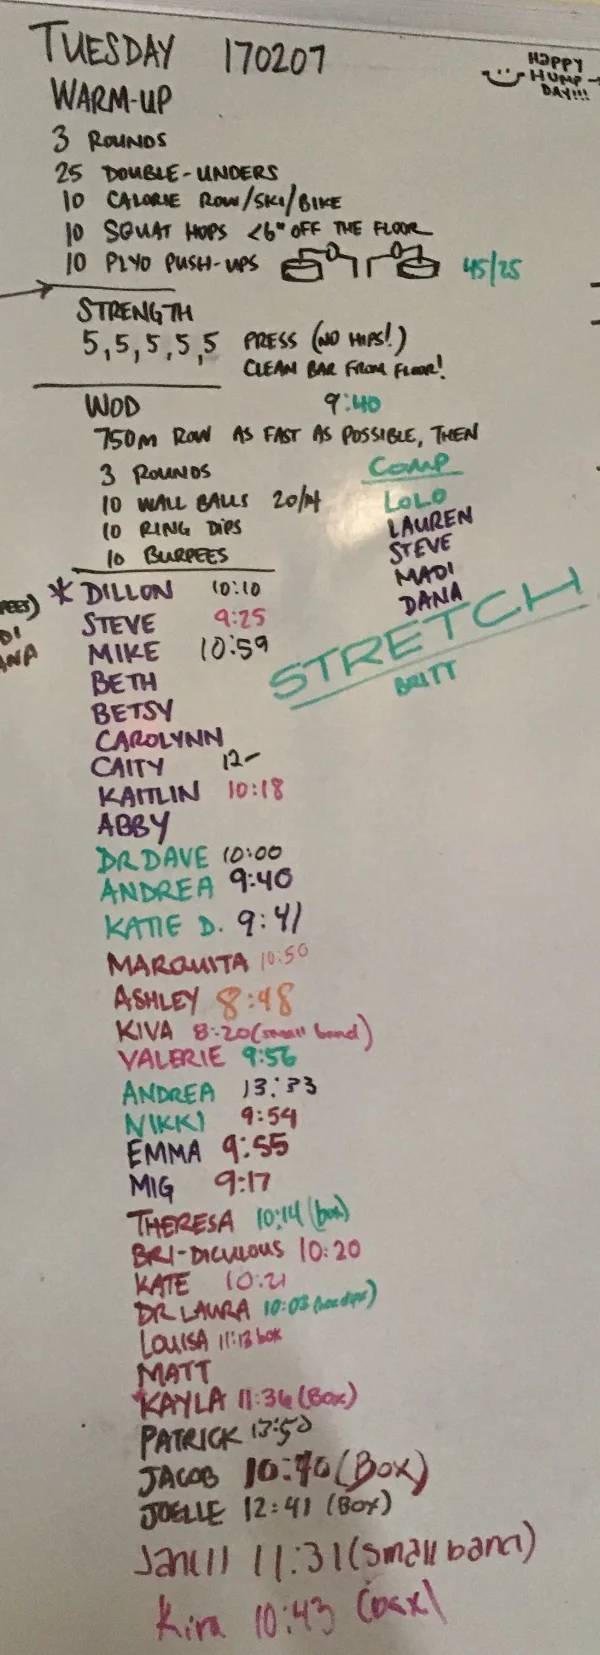 TUESDAY 170207
HAPPY
HUMP
DAY!!!
WARM-UP
3 ROUNDS
25 DOUBLE-UNDERS
10 CALORIE ROW/SKI/BIKE
10 SQUAT HOPS <6" OFF THE FLOOR
10 PLYO PUSH-UPS 45/25
STRENGTH
5,5,5,5,5 PRESS (NO HIPS!)
CLEAN BAR FROM FLOOR!
WOD 9:40
750M ROW AS FAST AS POSSIBLE, THEN
3 ROUNDS
10 WALL BALLS 20/14
10 RING DIPS
10 BURPEES
COMP
LOLO
LAUREN
STEVE
MADI
DANA
STRETCH
BRITT
* DILLON 10:10
STEVE 9:25
MIKE 10:59
BETH
BETSY
CAROLYNN
CAITY 12-
KAITLIN 10:18
ABBY
DR DAVE 10:00
ANDREA 9:40
KATIE D. 9:41
MARQUITA 10:50
ASHLEY 8:48
KIVA 8:20 (small band)
VALERIE 9:56
ANDREA 13:33
NIKKI 9:54
EMMA 9:55
MIG 9:17
THERESA 10:14 (box)
BRI-DICULOUS 10:20
KATE 10:21
DR LAURA 10:03 (box dips)
LOUISA 11:13 box
MATT
KAYLA 11:36 (Box)
PATRICK 13:50
JACOB 10:40 (Box)
JOELLE 12:41 (Box)
11:31 (small band)
Kira 10:43 (box)